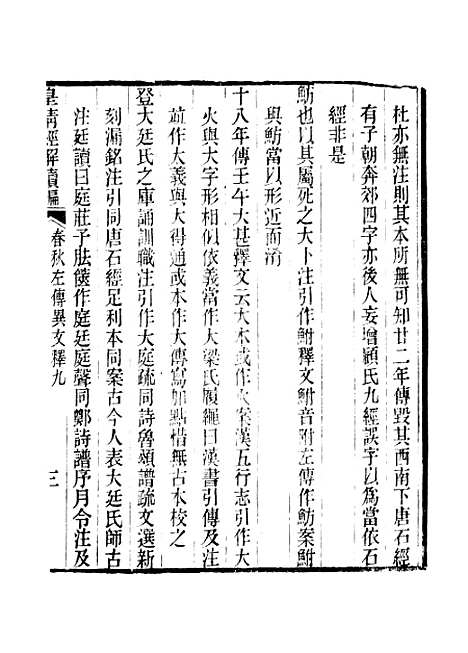 杜亦無注則其本所無可知廿二年傳毀其西南下唐石經
有子朝奔郊四字亦後人妄增顧氏九經誤字以爲當依石
經非是
魴也以其屬死之大卜注引作鮒釋文鮒音附左傳作魴案鮒
與魴當以形近而淆
十八年傳壬午大甚釋文云大本或作火案漢五行志引作大
火與大字形相似依義當作大梁氏履繩曰漢書引傳及法
疏作大義與大得通或本作大傳寫如點惜無古本校之
登大廷氏之庫誦訓職注引作大庭疏同詩魯頌譜疏文選新
刻漏銘注引同唐石經足利本同案古今人表大廷氏師古
注廷讀曰庭莊子胠篋作庭廷庭聲同鄭詩譜序月令注及
皇清經解續編
春秋左傳異文釋九
三